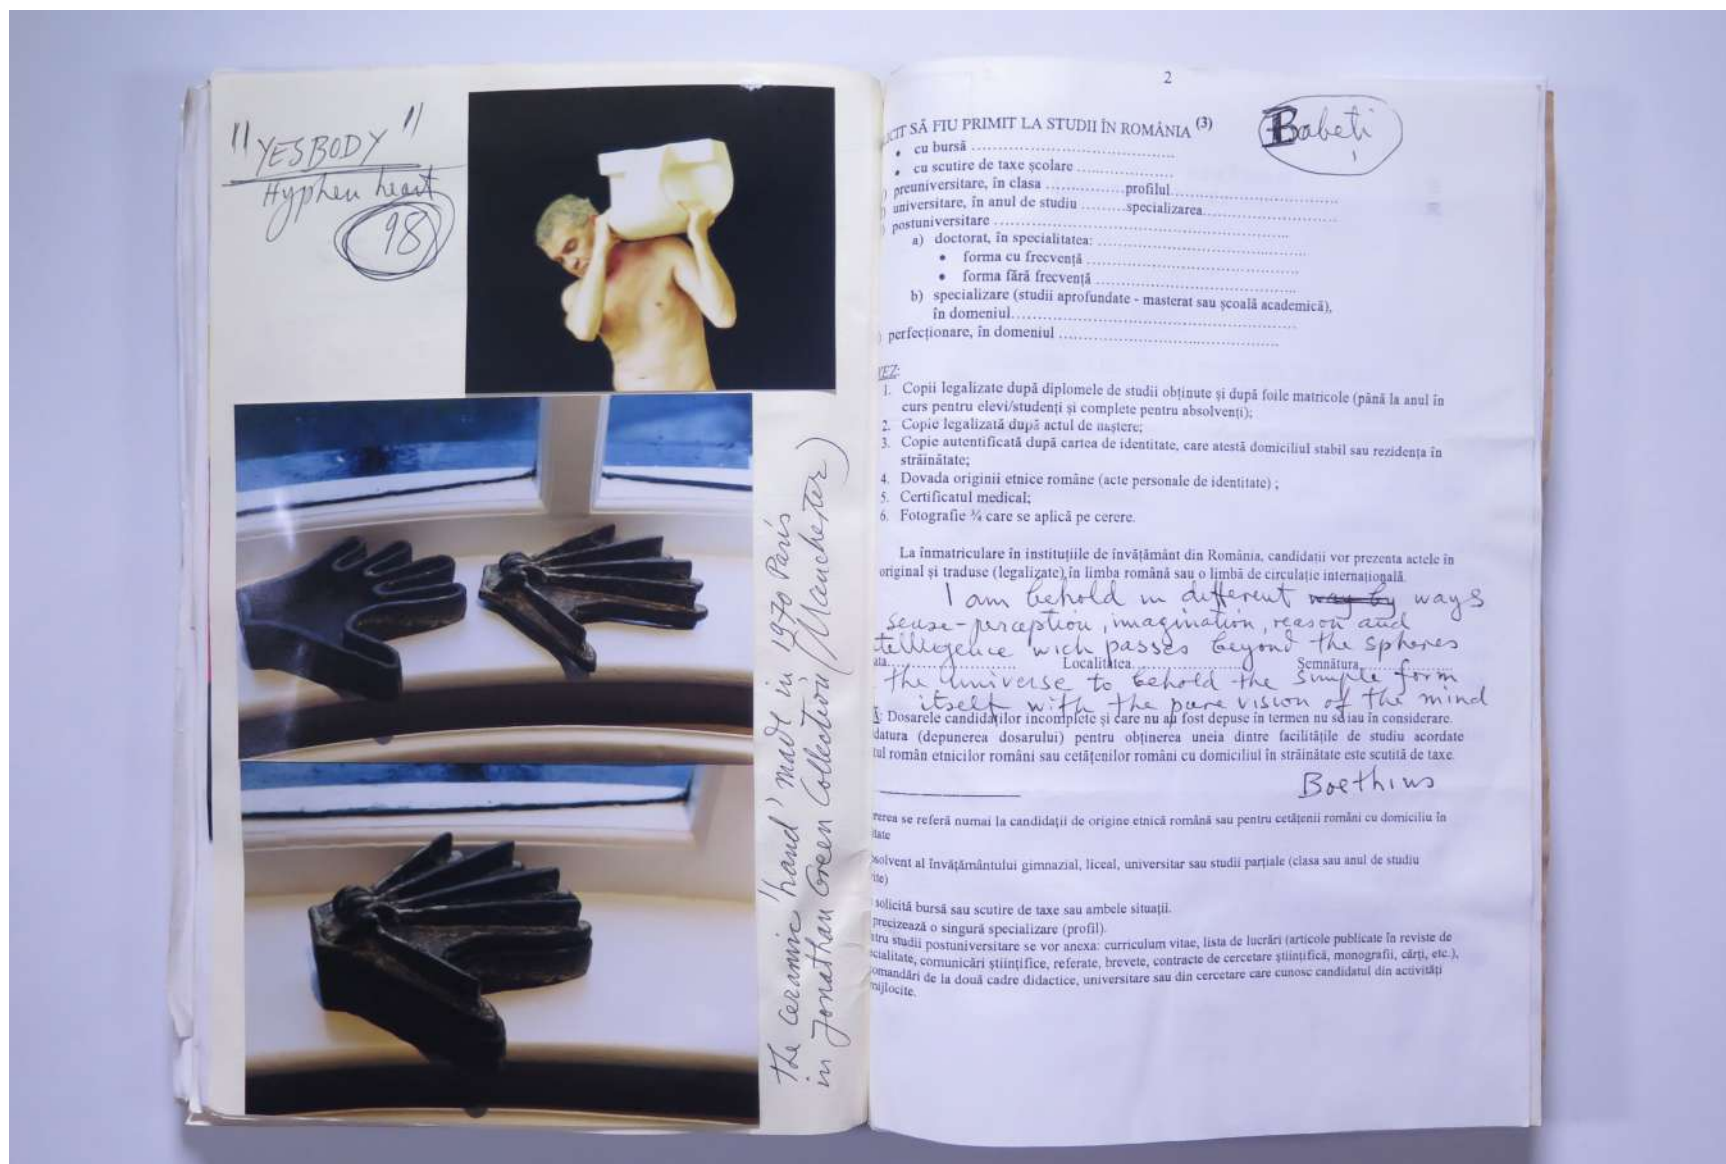 "YESBODY"
Hyphen heart
98
the ceramic 'hand' made in 1970 Paris
in Jonathan Green Collection (Manchester)
2
Babeți
CIT SĂ FIU PRIMIT LA STUDII ÎN ROMÂNIA (3)
• cu bursă
• cu scutire de taxe școlare
) preuniversitare, în clasa profilul
) universitare, în anul de studiu specializarea
) postuniversitare
a) doctorat, în specialitatea:
• forma cu frecvență
• forma fără frecvență
b) specializare (studii aprofundate - masterat sau școală academică),
în domeniul
) perfecționare, în domeniul
EZ:
1. Copii legalizate după diplomele de studii obținute și după foile matricole (până la anul în
curs pentru elevi/studenți și complete pentru absolvenți);
2. Copie legalizată după actul de naștere;
3. Copie autentificată după cartea de identitate, care atestă domiciliul stabil sau rezidența în
străinătate;
4. Dovada originii etnice române (acte personale de identitate) ;
5. Certificatul medical;
6. Fotografie ¾ care se aplică pe cerere.
La înmatriculare în instituțiile de învățământ din România, candidații vor prezenta actele în
original și traduse (legalizate) în limba română sau o limbă de circulație internațională.
I am behold in different way by ways
sense-perception, imagination, reason and
telligence wich passes beyond the spheres
ata Localitatea Semnătura
the universe to behold the simple form
itself with the pure vision of the mind
A: Dosarele candidaților incomplete și care nu au fost depuse în termen nu se iau în considerare.
datura (depunerea dosarului) pentru obținerea uneia dintre facilitățile de studiu acordate
tul român etnicilor români sau cetățenilor români cu domiciliul în străinătate este scutită de taxe.
Boethius
rerea se referă numai la candidații de origine etnică română sau pentru cetățenii români cu domiciliu în
itate
bsolvent al învățământului gimnazial, liceal, universitar sau studii parțiale (clasa sau anul de studiu
ite)
solicită bursă sau scutire de taxe sau ambele situații.
precizează o singură specializare (profil).
tru studii postuniversitare se vor anexa: curriculum vitae, lista de lucrări (articole publicate în reviste de
cialitate, comunicări științifice, referate, brevete, contracte de cercetare științifică, monografii, cărți, etc.),
omandări de la două cadre didactice, universitare sau din cercetare care cunosc candidatul din activități
mijlocite.